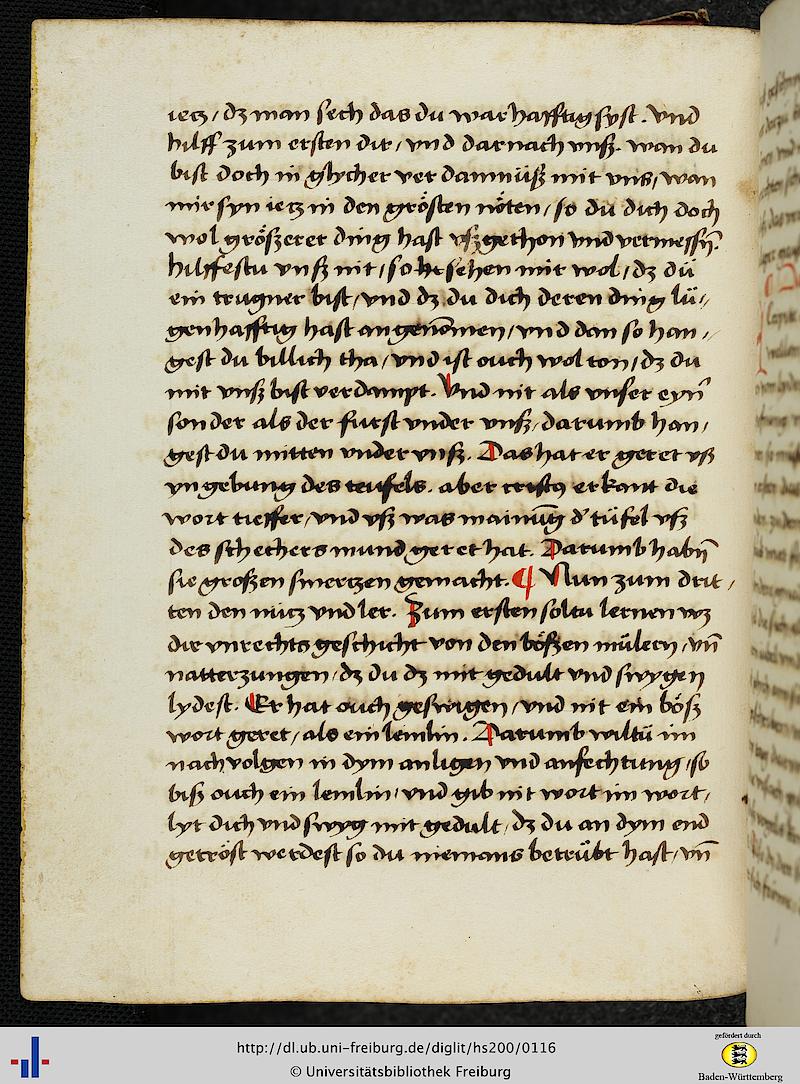 ietz / dz man sech das du warhafftig syst . vnd
hilff zum ersten dir / vnd darnach vnß . wan du
bist doch in glycher verdamnüß mit vns / wan
mir syn ietz in den grösten nöten / so du dich doch
wol größerer ding hast vßgethon vnd vermessn̄ .
hilffestu vnß nit / so sehen mir wol / dz dü
ein trugner bist / vnd dz du dich deren ding lü-
genhafftig hast angenomen / vnd dan so han-
gest du billich tha / vnd ist ouch wol ton / dz du
mit vnß bist verdampt . Vnd nit als vnser eyn̄
sonder als der furst vnder vnß / darumb han-
gest du mitten vnder vnß . Das hat er geret vß
yngebung des teufels . aber cristꝯ erkant die
wort tieffer / vnd vß was mainūg d' tüfel vß
des schechers mund geret hat . Darumb habn̄
sie großen smertzen gemacht . ¶ Nun zum drit-
ten den nutz vnd ler . Zum ersten soltu lernen wz
dir vnrechts geschicht von den bößen mülern / vn̄
natterzungen / dz du dz mit gedult vnd swygen
lydest . Er hat ouch geswigen / vnd nit ein böß
wort geret / als ein lemlin . Darumb wiltü im
nachvolgen in dym anligen vnd anfechtung / so
biß ouch ein lemlin / vnd gib nit wort im wort /
lyt dich vnd swyg mit gedult / dz du an dym end
getröst werdest so du niemans betrübt hast / vn̄
http://dl.ub.uni-freiburg.de/diglit/hs200/0116
© Universitätsbibliothek Freiburg
gefördert durch
Baden-Württemberg